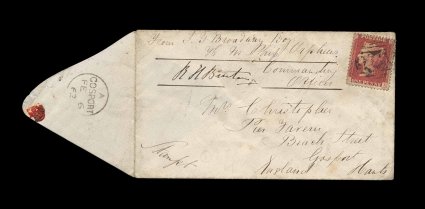 From J. T. Broadway Boy
H. M. Ship Orpheus
Commanding
Officer
Mrs Christopher
Pier Tavern
Beach Street
Gosport
England Hants
A
GOSPORT
FE 6
62